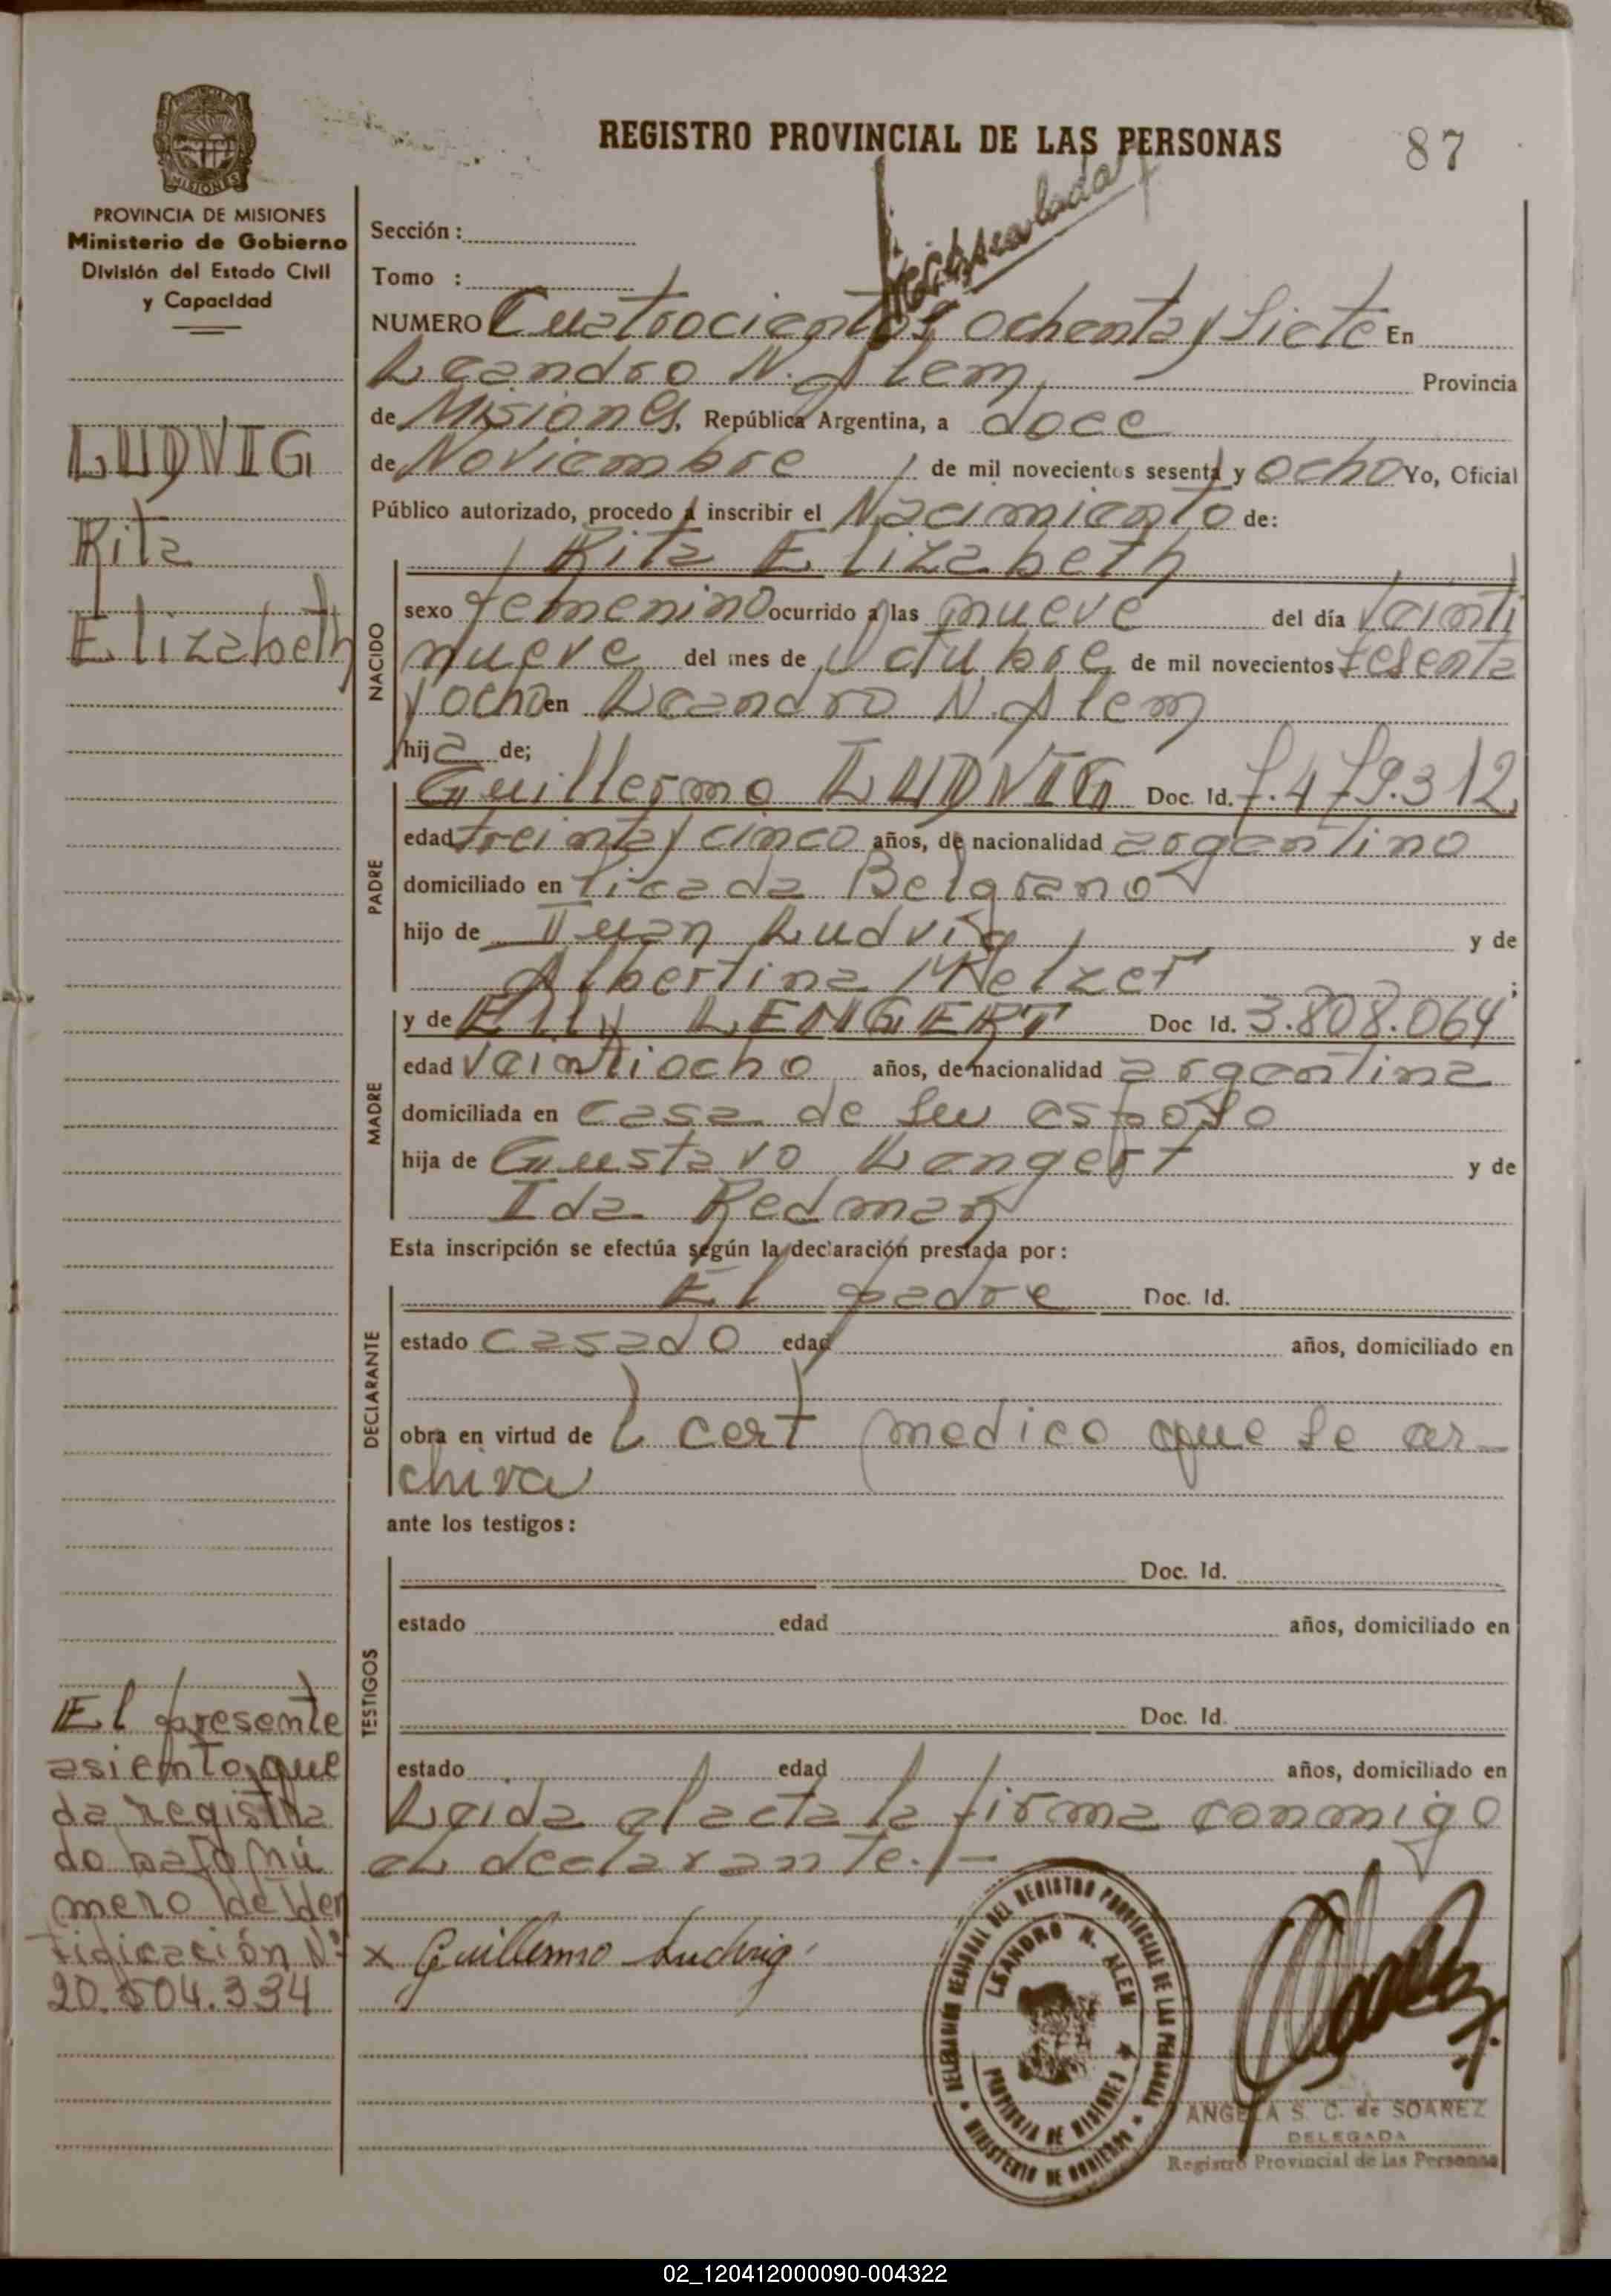 REGISTRO PROVINCIAL DE LAS PERSONAS
87
PROVINCIA DE MISIONES
Ministerio de Gobierno
División del Estado Civil
y Capacidad
LUDVIG
Rita
Elizabeth
El presente
asiento, que
da registra
do bajo nú
mero de Iden
tidicación Nº
20.504.334
Matriculada
Sección :
Tomo :
NUMERO Cuatrocientos ochenta y Siete En
Leandro N. Alem, Provincia
de Misiones, República Argentina, a doce
de Noviembre de mil novecientos sesenta y ocho Yo, Oficial
Público autorizado, procedo a inscribir el Nacimiento de:
Rita Elizabeth
NACIDO
sexo femenino ocurrido a las nueve del día Veinti
nueve del mes de Octubre de mil novecientos sesenta
y ocho en Leandro N. Alem
hija de;
PADRE
Guillermo LUDVIG Doc. Id. 7.479.312
edad treinta y cinco años, de nacionalidad argentino
domiciliado en Picada Belgrano
hijo de Juan Ludvig y de
Albertina Melzer ;
MADRE
y de Elly LENGERT Doc Id. 3.808.064
edad Veintiocho años, de nacionalidad argentina
domiciliada en casa de su esposo
hija de Gustavo Lengert y de
Ida Redman
Esta inscripción se efectúa según la declaración prestada por:
DECLARANTE
El padre Doc. Id.
estado casado edad años, domiciliado en
obra en virtud de l cert medico que se ar-
chiva
ante los testigos:
TESTIGOS
Doc. Id.
estado edad años, domiciliado en
Doc. Id.
estado edad años, domiciliado en
Leida el acta la firma conmigo
el declarante.-
x Guillermo Ludvig
DELEGACIÓN DEL REGISTRO PROVINCIAL DE LAS PERSONAS
MINISTERIO DE GOBIERNO
LEANDRO N. ALEM
PROVINCIA DE MISIONES
ANGELA S. C. de SOAREZ
DELEGADA
Registro Provincial de las Personas
02_120412000090-004322